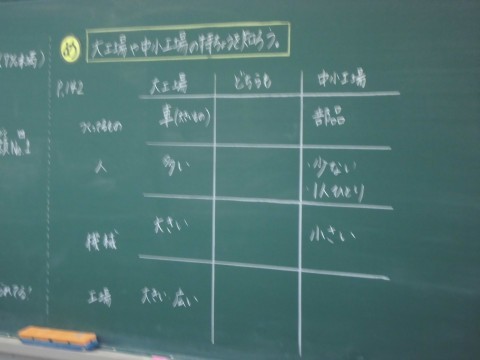 め 大工場や中小工場の特ちょうを知ろう。
P.142 大工場 どちらも 中小工場
つくってるもの 車(大きいもの) 部品
人 多い ・少ない
・1人ひとり
機械 大きい 小さい
工場 大きい 広い